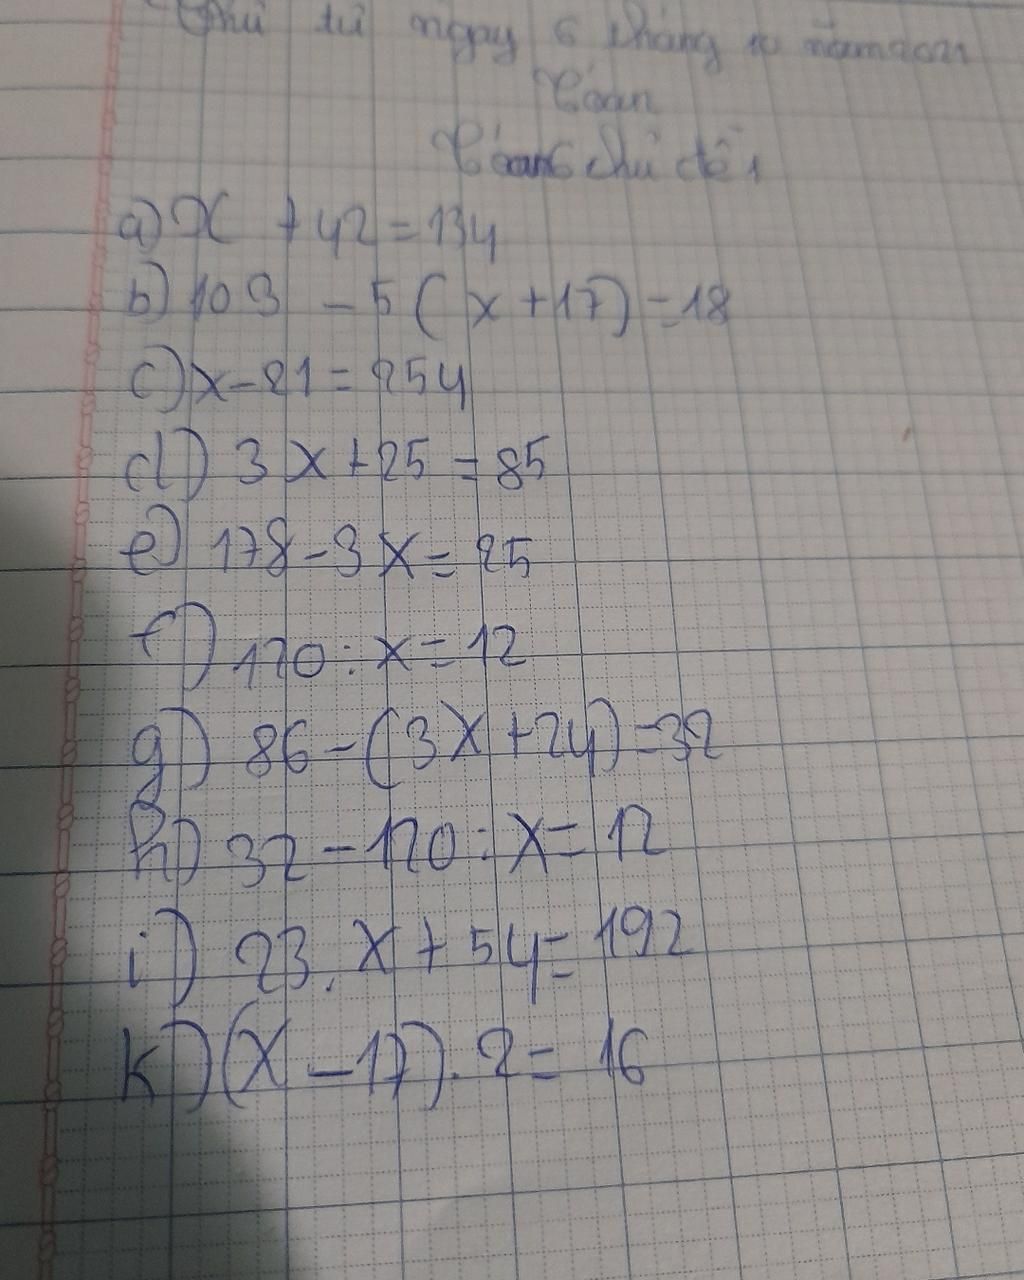 Thứ tư ngày 6 tháng 10 năm 2021
Toán
Toán 6 chủ đề 1
a) x + 42 = 134
b) 103 - 5 ( x + 17) = 18
c) x - 21 = 254
d) 3x + 25 = 85
e) 178 - 3x = 25
f) 120 : x = 12
g) 86 - (3x + 24) = 32
h) 32 - 120 : x = 12
i) 23 . x + 54 = 192
k) (x - 17) . 2 = 16